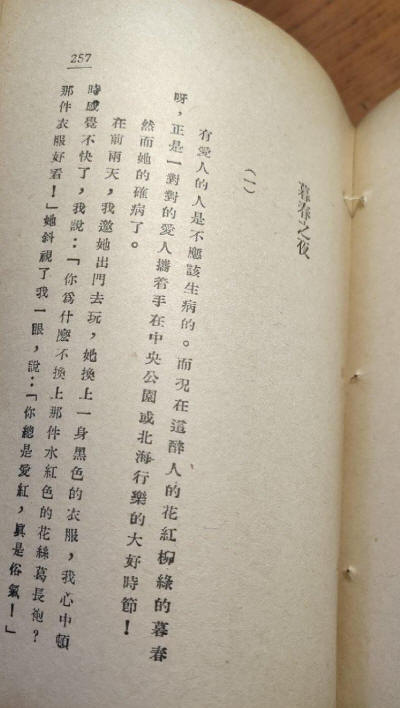 暮春之夜
（一）
有愛人的人是不應該生病的。而況在這醉人的花紅柳綠的暮春
呀，正是一對對的愛人攜着手在中央公園或北海行樂的大好時節！
然而她的確病了。
在前兩天，我邀她出門去玩，她換上一身黑色的衣服，我心中頓
時感覺不快了，我說：「你爲什麼不換上那件水紅色的花絲葛長袍？
那件衣服好看！」她斜視了我一眼，說：「你總是愛紅，眞是俗氣！」
257